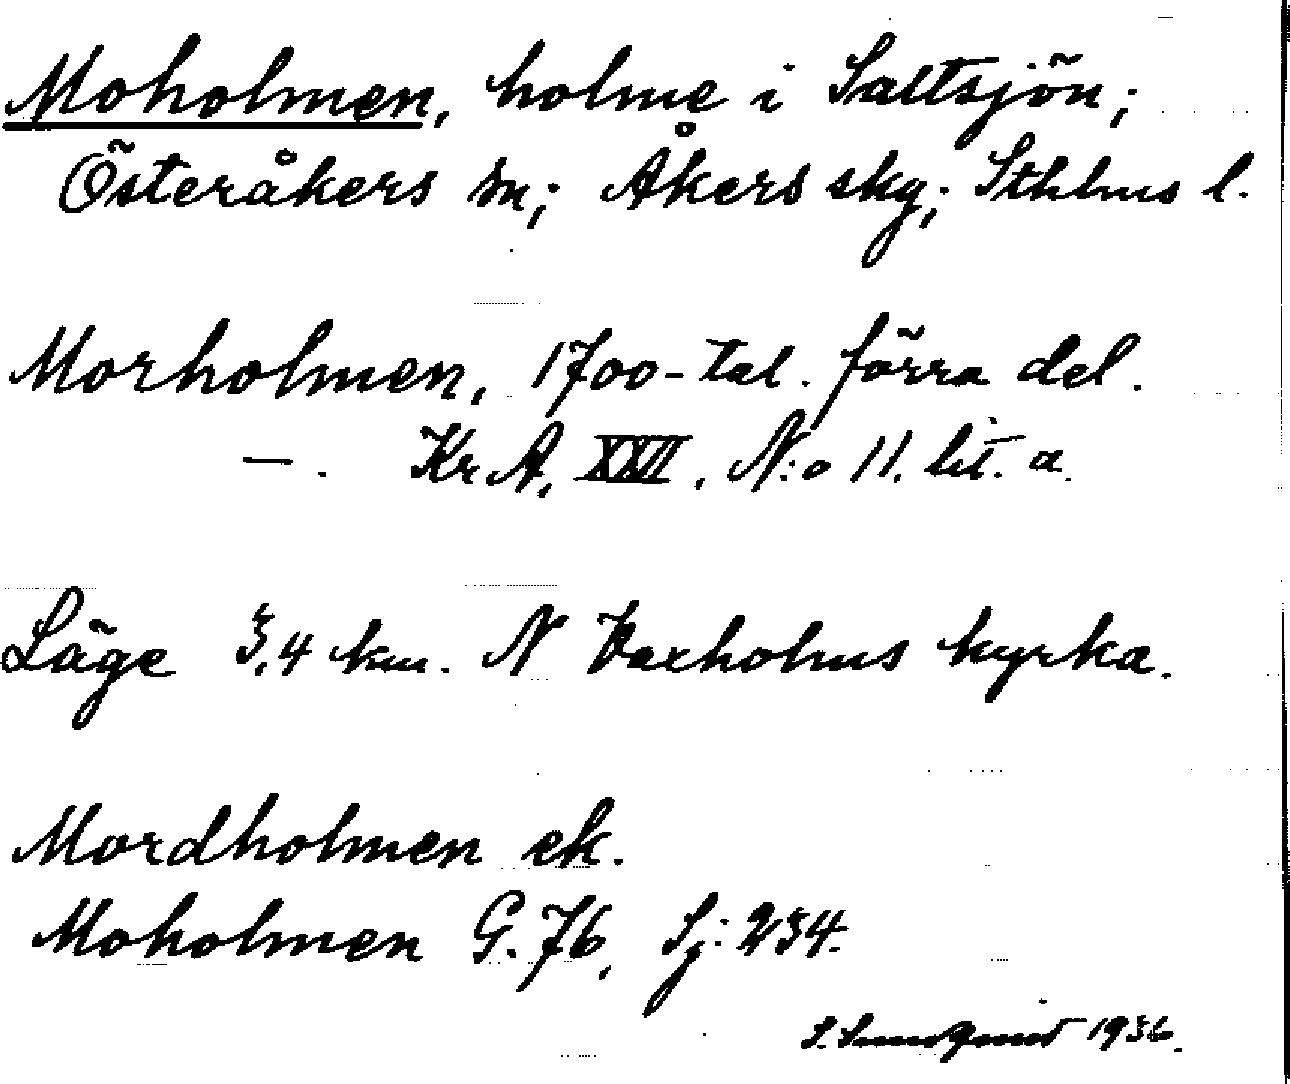 Moholmen, holme i Saltsjön;
Österåkers sn; Åkers skg; Sthlms l.
Morholmen, 1700-tal. förra del.
— . KrA, XXVI, N:o 11. lit. a.
Läge 3,4 km. N Vaxholms kyrka.
Mordholmen ek.
Moholmen G. 76, Sj: 234.
S. Sundqvist 1936.